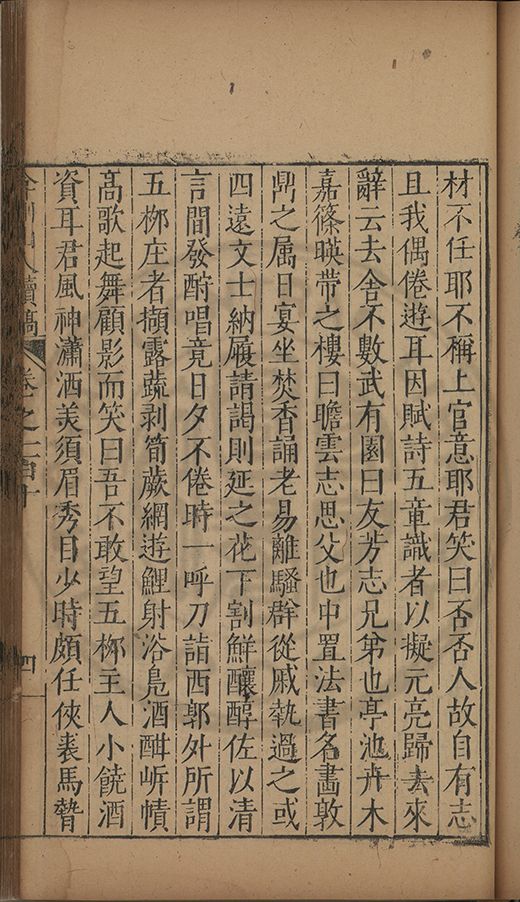 材不任耶不稱上官意耶君笑曰否否人故自有志
且我偶倦遊耳因賦詩五章識者以擬元亮歸去來
辭云去舍不數武有園曰友芳志兄弟也亭池卉木
嘉篠暎带之樓曰瞻雲志思父也中置法書名畵敦
鼎之属日宴坐焚香誦老易離騷群從戚執過之或
四遠文士納履請謁則延之花下割鮮釀醇佐以清
言間發酧唱竟日夕不倦時一呼刀詣西郭外所謂
五桞庄者擷露蔬剥筍蕨網遊鯉射浴鳧酒酣岓幘
髙歌起舞顧影而笑曰吾不敢望五桞主人小饒酒
資耳君風神瀟洒美須眉秀目少時頗任俠裘馬聲
山人續稿 卷之一百四十 四